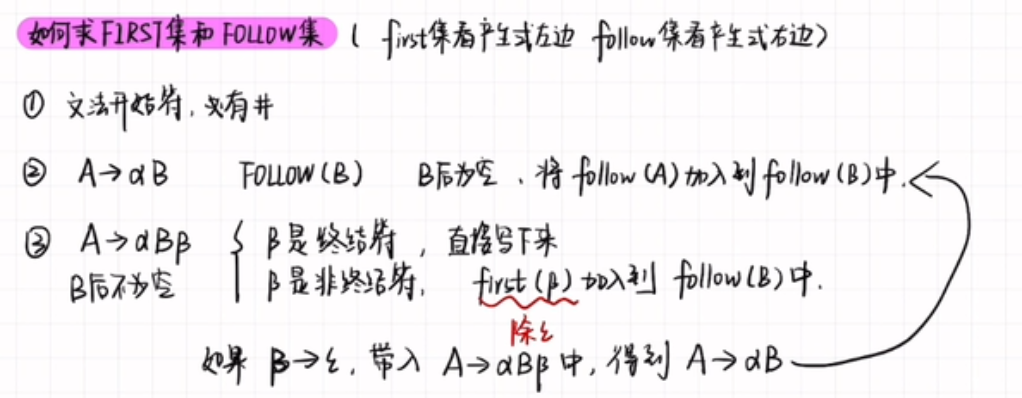 如何求FIRST集和FOLLOW集 ( first集看产生式左边 follow集看产生式右边)
① 文法开始符,必有#
② A→αB FOLLOW(B) B后为空,将follow(A)加入到follow(B)中.
③ A→αBβ { β是终结符,直接写下来
B后不为空 β是非终结符, first(β)加入到 follow(B)中.
除ε
如果 β→ε,带入 A→αBβ中,得到 A→αB